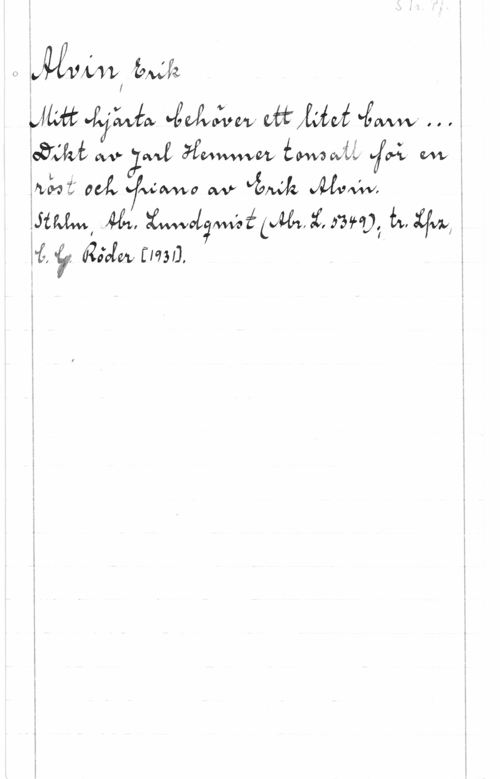 S 1 r. Pf.
Alvin, Erik
Mitt hjärta behöver ett litet barn ...
Dikt av Jarl Hemmer tonsatt för en
röst och piano av Erik Alvin.
Sthlm, Abr. Lundqvist (Abr. L. 5349); tr. Lpz,
C. G. Röder [1931].